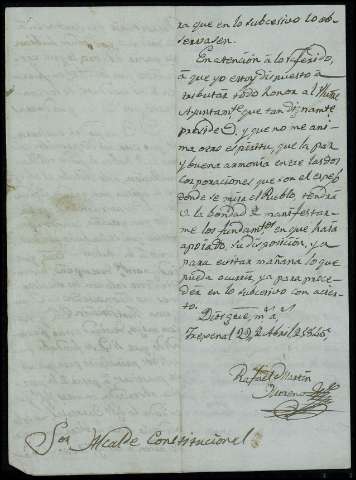 ra que en lo subcesivo lo ob-
servasen.
En atención á lo referido,
á que yo estoy dispuesto á
tributar todo honor al Yltre
Ayuntamte que tan dignamte
preside V., y que no me ani-
ma otro espíritu, que la paz
y buena armonía entre las dos
corporaciones que son el espejo
donde se mira el Pueblo, tendrá
V. la bondad de manifestar-
me los fundamtos en que haya
apoyado su disposición, ya
para evitar mañana lo que
pueda ocurrir, ya para proce-
der en lo subcesivo con acier-
to.
Dios gue á V. m. a.
Fregenal 22 de Abril de
Rafael Martín
Moreno
Sor Alcalde Constitucional